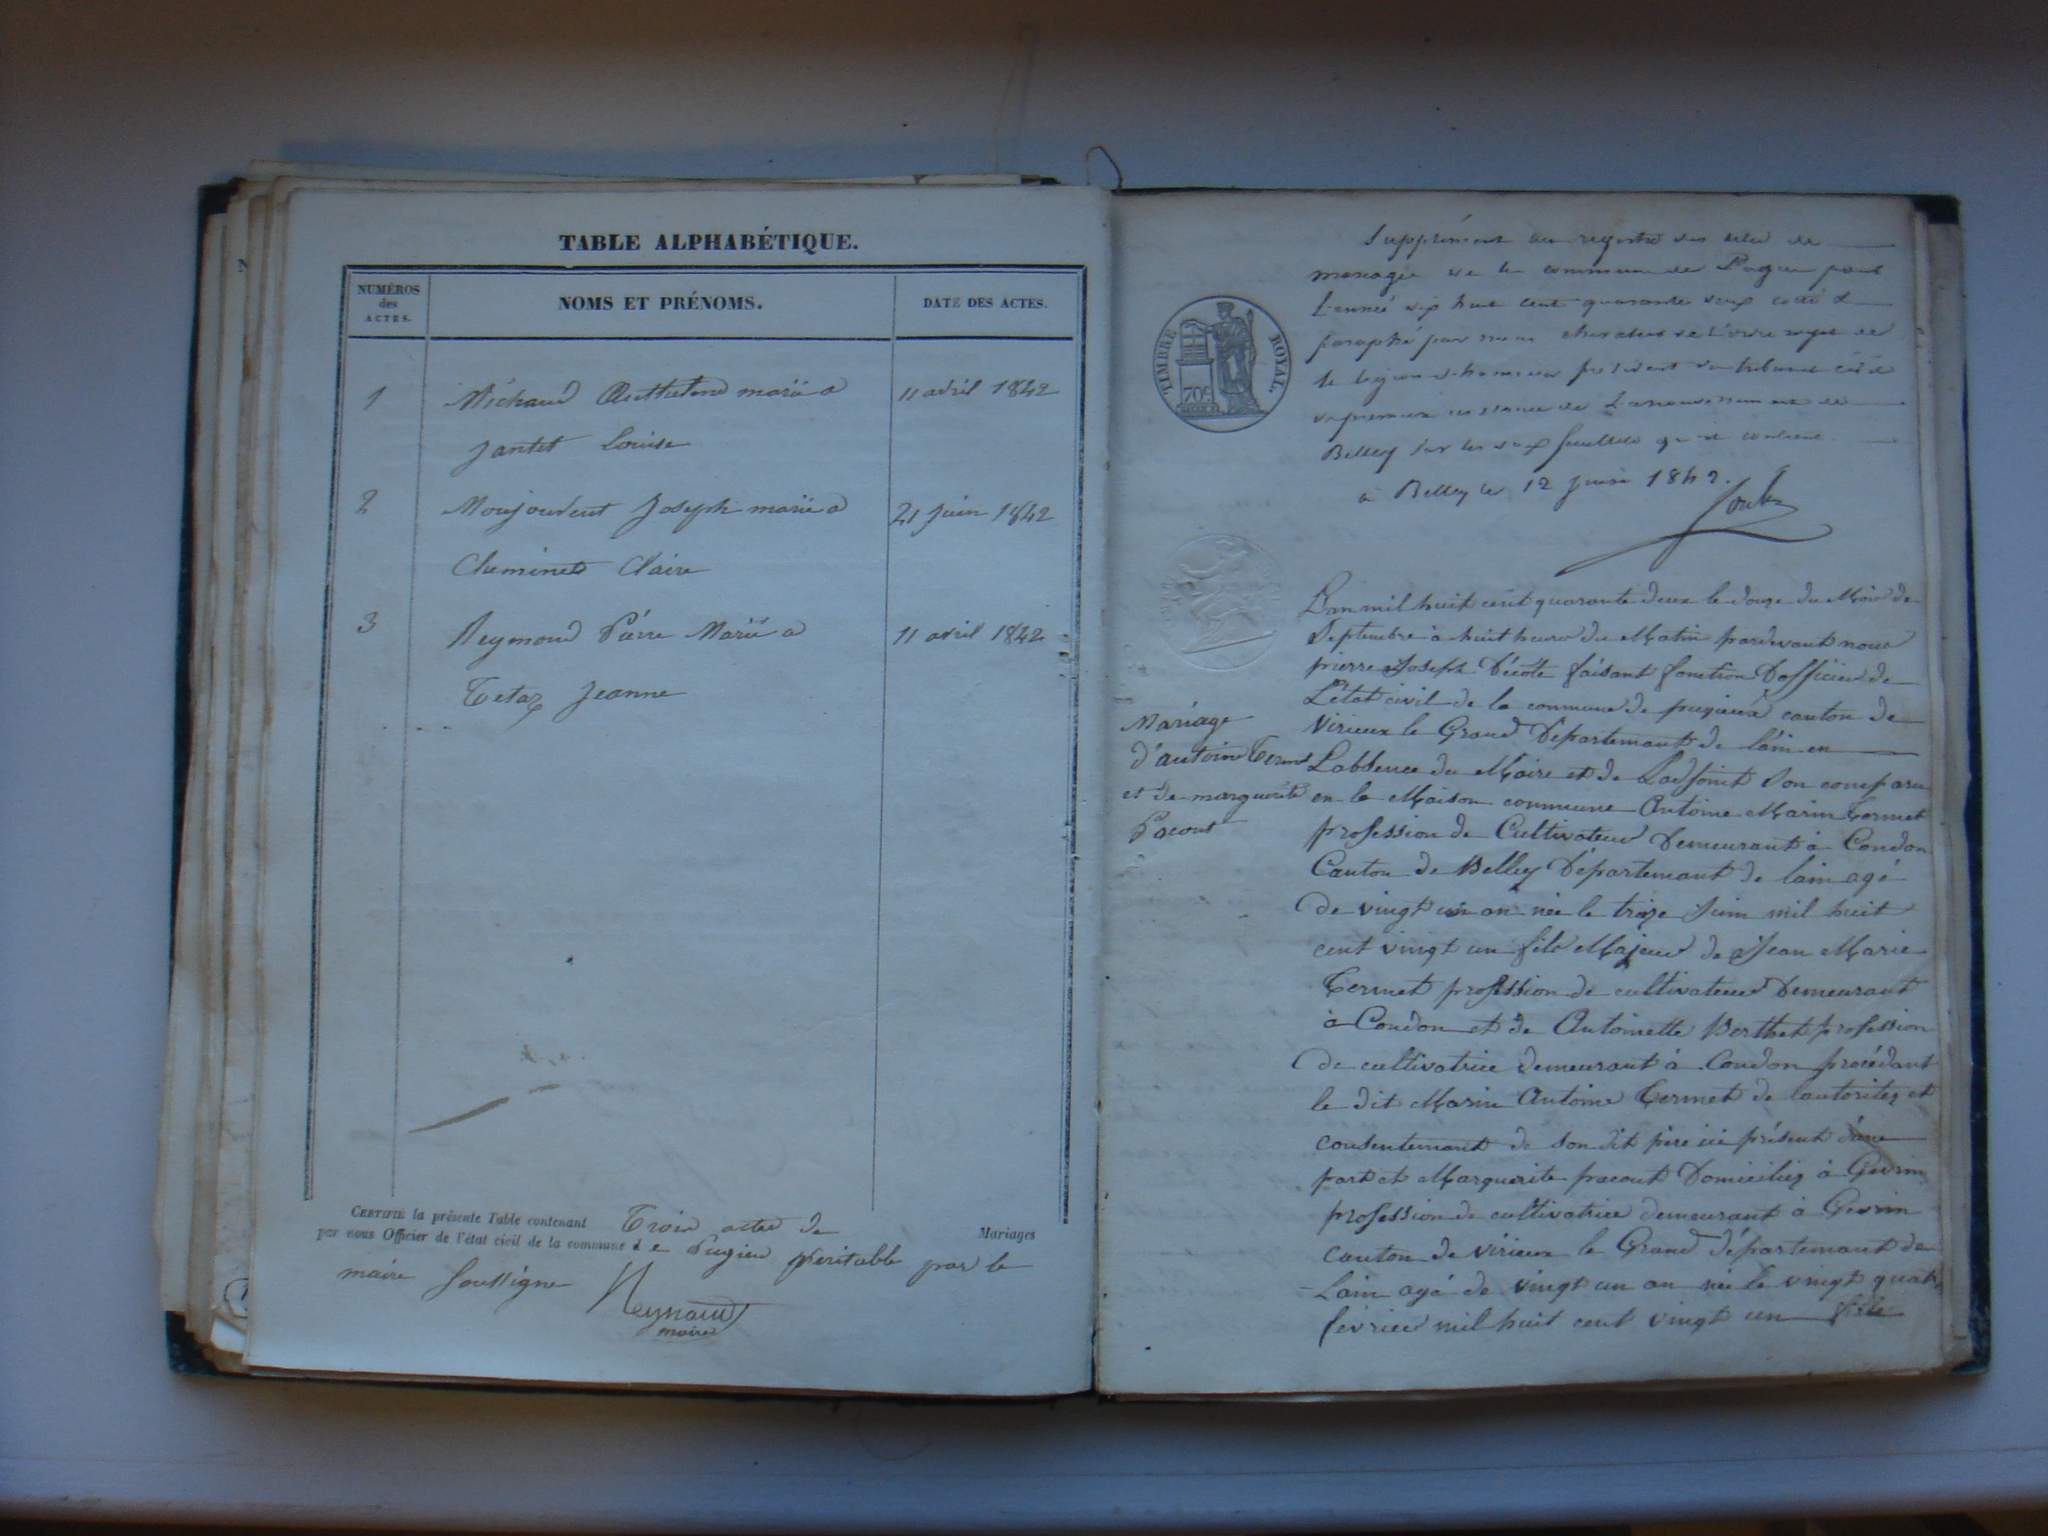 TABLE ALPHABÉTIQUE.
NUMÉROS
des
ACTES.
NOMS ET PRÉNOMS.
DATE DES ACTES.
1 Michaud Anthelme marié a 11 avril 1842
Jantet Louise
2 Monjourent Joseph marié a 21 juin 1842
Cheminet Claire
3 Reymond Pierre Marié a 11 avril 1842
Tetaz Jeanne
CERTIFIÉ la présente Table contenant Trois actes de Mariages
par nous Officier de l'état civil de la commune de Pugieu véritable par le
maire Soussigne Reynaud
maire
TIMBRE ROYAL.
70c.
Supplément au registre des actes de
mariages de la commune de Pugieu pour
L'année mil huit cent quarante deux coté &
paraphé par nous chevalier de L'ordre royal de
la légion d'honneur président du tribunal civil
de première instance de L'arrondissement de
Belley sur les deux feuillets qu'il contient
à Belley le 12 juin 1842.
Mariage
d'antoine Termet
et de marguerite
Pacout
Lan mil huit cent quarante deux le douze du Mois de
Septembre à huit heures du Matin pardevant nous
pierre Joseph Décote faisant fonction D'officier de
L'état civil de la commune de pugieux canton de
Virieux le Grand Département de lain en
Labsence du Maire et de Ladjoint Son comparu
en la Maison commune Antoine Marin Termet
profession de Cultivateur Demeurant à Condon
Canton de Belley Département de lain agé
de vingt un an née le treize Juin mil huit
cent vingt un fils Majeur de Jean Marie
Termet profession de cultivateur Demeurant
à Condon et de Antoinette Berthet profession
de cultivatrice demeurant à Condon procédant
le dit Marin Antoine Termet de lautoritez et
consentement de son dit père ici présent d'une
part et Marguerite pacout Domiciliez à Gevrin
profession de cultivatrice demeurant à Gevrin
canton de virieux le Grand département de
Lain agé de vingt un an née le vingt quatre
février mil huit cent vingt un fille